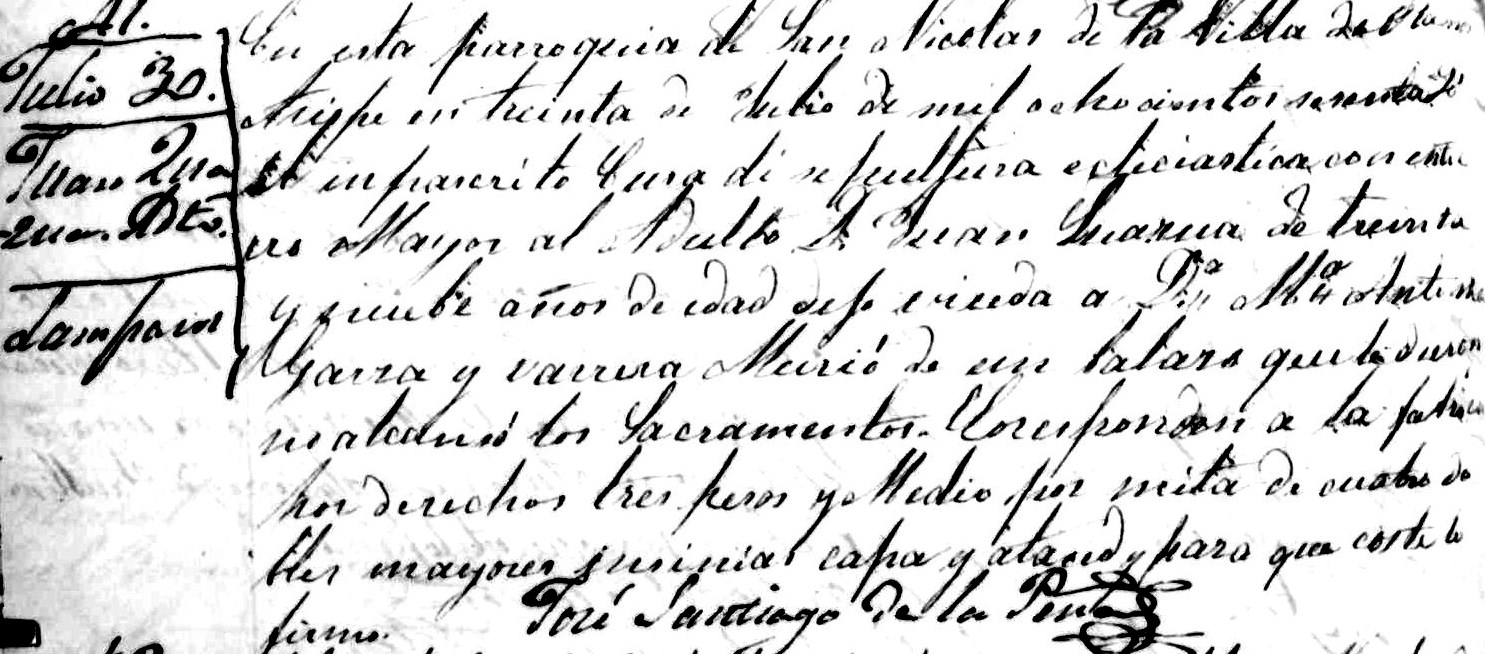 Julio 30.
Juan Zua
zua. Adto.
Lampasos
En esta parroquia de San Nicolas de la Villa de Lam
en treinta de Julio de mil ochocientos sesenta Io
el infrascrito Cura di sepultura ecleciastica con enti
ero Mayor al Adulto D. Juan Zuazua de treinta
y nuebe años de edad dejo viuda a Dª Mª Antonia
Garza y varrera Murió de un balazo que le dieron
no alcansó los Sacramentos. Coresponden a la fabrica
por derechos tres pesos y Medio por mita de cuatro do
bles mayores insinias capa y ataud y para que coste lo
firmo. José Santiago de la Peña